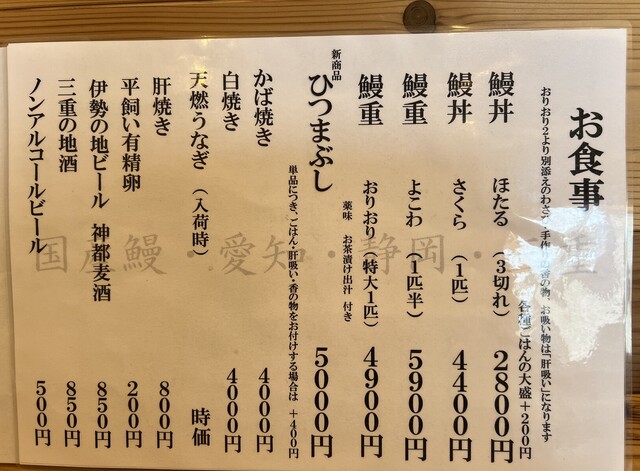 お食事
おりおり2より別添えのわさび、手作り香の物、お吸い物は「肝吸い」になります
各種ごはんの大盛+200円
鰻丼 ほたる (3切れ) 2800円
鰻丼 さくら (1匹) 4400円
鰻重 よこわ (1匹半) 5900円
鰻重 おりおり(特大1匹) 4900円
薬味 お茶漬け出汁 付き
新商品
ひつまぶし 5000円
単品につき、ごはん・肝吸い・香の物をお付けする場合は +400円
かば焼き 4000円
白焼き 4000円
天燃うなぎ (入荷時) 時価
肝焼き 800円
平飼い有精卵 200円
伊勢の地ビール 神都麦酒 850円
三重の地酒 850円
ノンアルコールビール 500円
国産鰻・愛知・静岡・